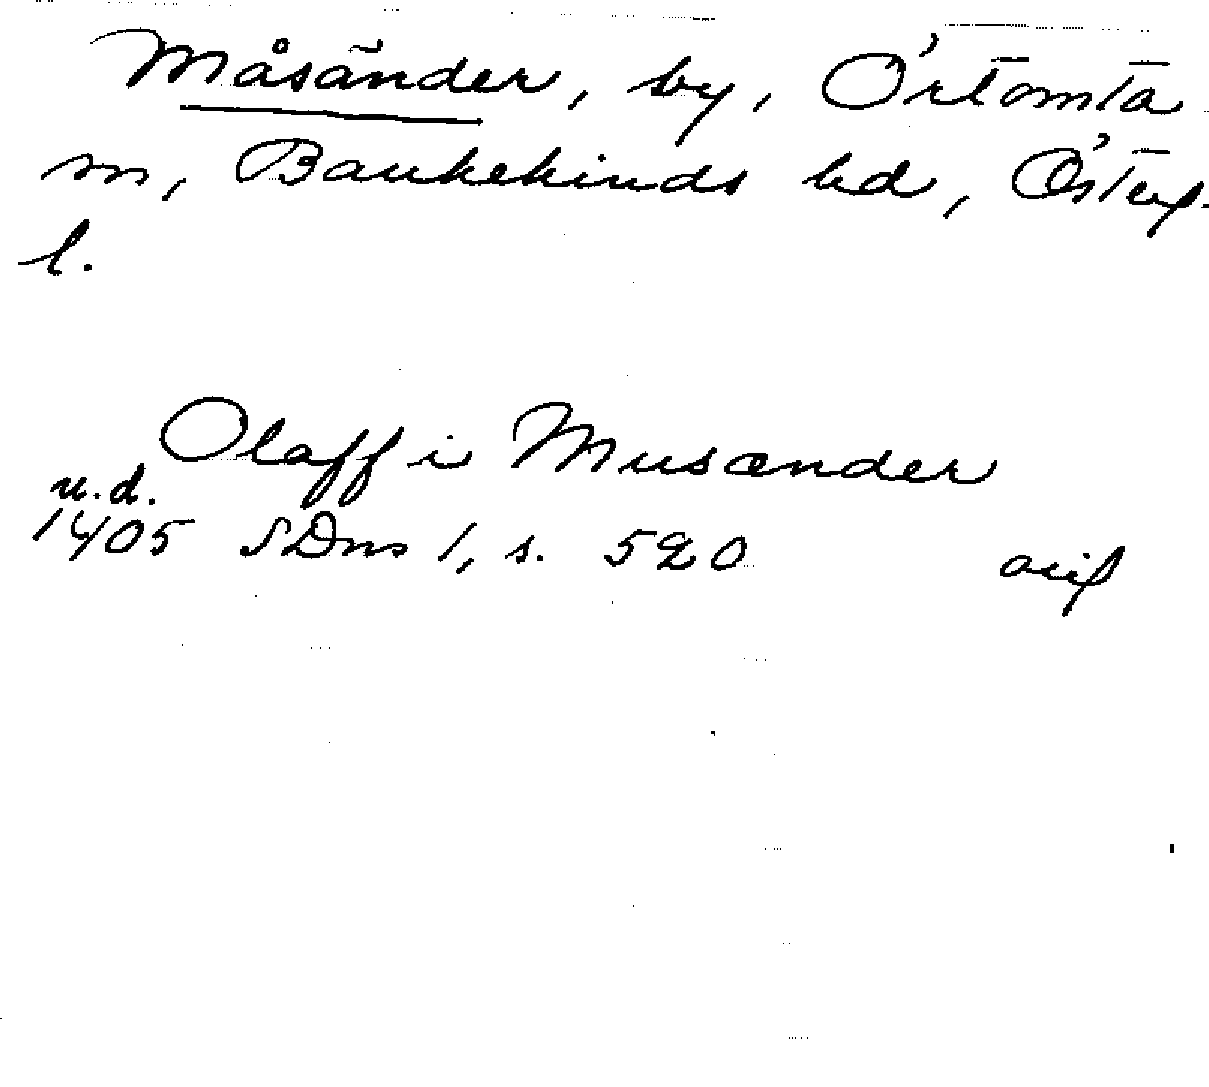 Måsänder, by, Örtomta
sn, Bankekinds hd, Österg.
l.
Olaff i Musænder
u.d.
1405 SDns 1, s. 520 avs